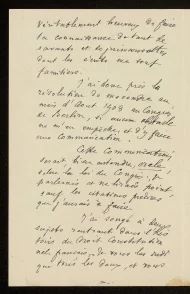 véritablement heureux de faire
la connaissance de tant de
savants et de personnes
dont les écrits me sont
familiers.
J'ai donc pris la
résolution de me rendre au
mois d'Août 1908 au Congrès
de Berlin, si aucun obstacle
ne m'en empêche, et d'y faire
une communication.
Cette communication
serait, bien entendu, orale,
selon la loi du Congrès, je
parlerais et ne lirais point
sauf les citations
que j'aurais à faire.
J'ai songé à deux
sujets rentrant dans l'His-
toire du Droit Constitution-
nel français. Je vous les dis
que tous les deux, et vous